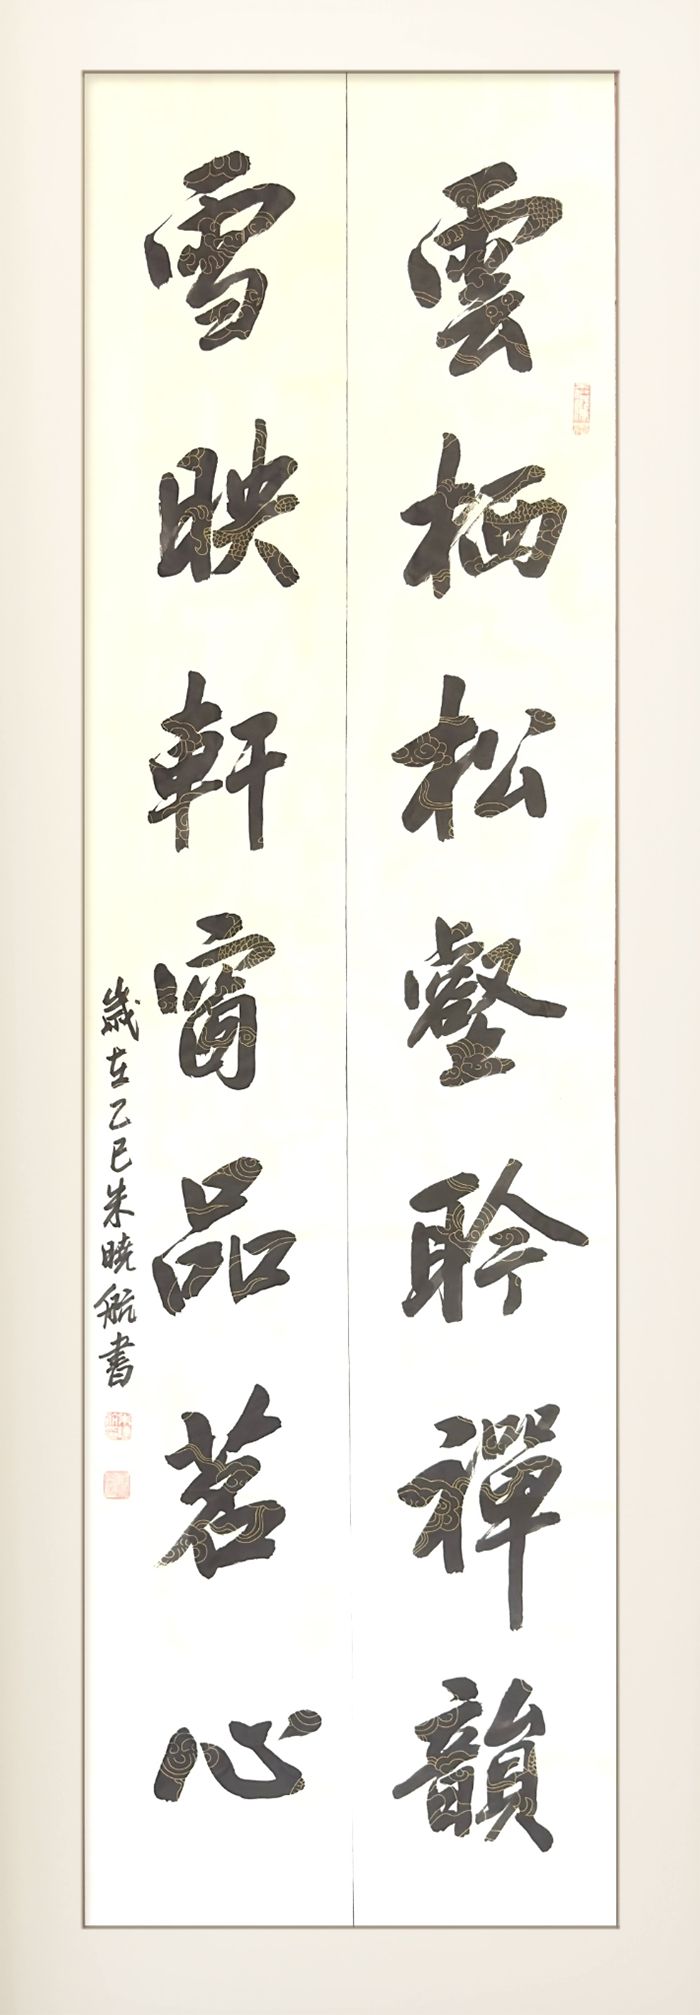 雲栖松壑聆禪韻
雪映軒窗品茗心
歲在乙巳朱曉航書